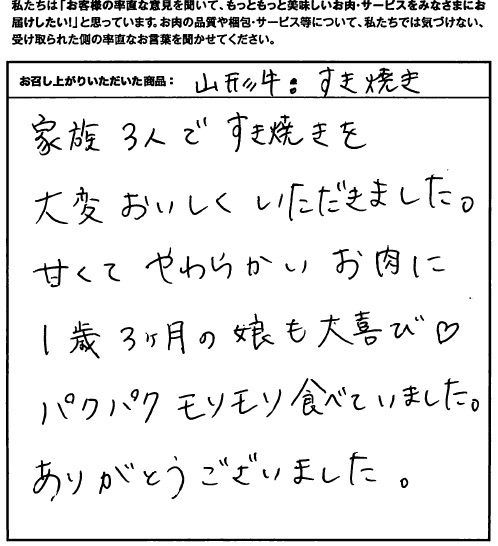 私たちは「お客様の率直な意見を聞いて、もっともっと美味しいお肉・サービスをみなさまにお
届けしたい!」と思っています。お肉の品質や梱包・サービス等について、私たちでは気づけない、
受け取られた側の率直なお言葉を聞かせてください。
お召し上がりいただいた商品: 山形牛:すき焼き
家族3人ですき焼きを
大変おいしくいただきました。
甘くてやわらかいお肉に
1歳3ヶ月の娘も大喜び♡
パクパクモリモリ食べていました。
ありがとうございました。